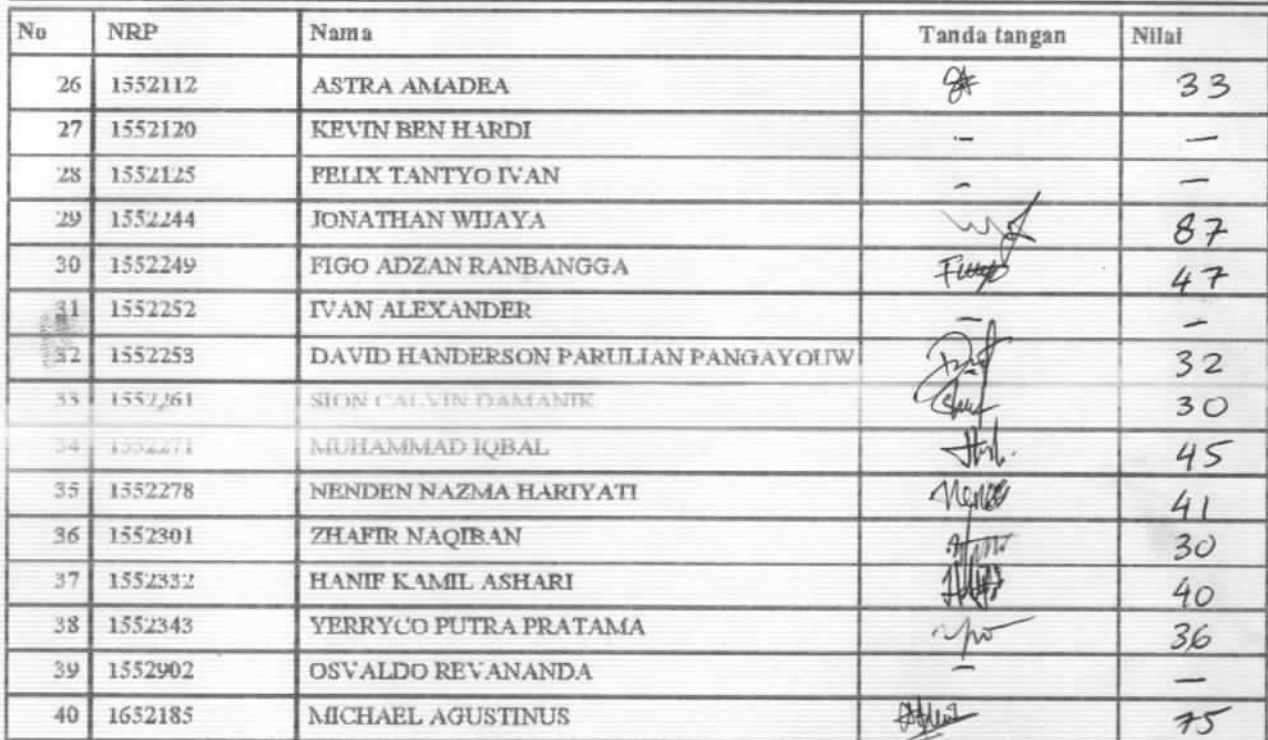 No NRP Nama Tanda tangan Nilai
26 1552112 ASTRA AMADEA 33
27 1552120 KEVIN BEN HARDI - -
28 1552125 FELIX TANTYO IVAN - -
29 1552244 JONATHAN WIJAYA 87
30 1552249 FIGO ADZAN RANBANGGA 47
31 1552252 IVAN ALEXANDER - -
32 1552253 DAVID HANDERSON PARULIAN PANGAYOUW 32
33 1552261 SION CALVIN DAMANIK 30
34 1552271 MUHAMMAD IQBAL 45
35 1552278 NENDEN NAZMA HARIYATI 41
36 1552301 ZHAFIR NAQIBAN 30
37 1552332 HANIF KAMIL ASHARI 40
38 1552343 YERRYCO PUTRA PRATAMA 36
39 1552902 OSVALDO REVANANDA - -
40 1652185 MICHAEL AGUSTINUS 75